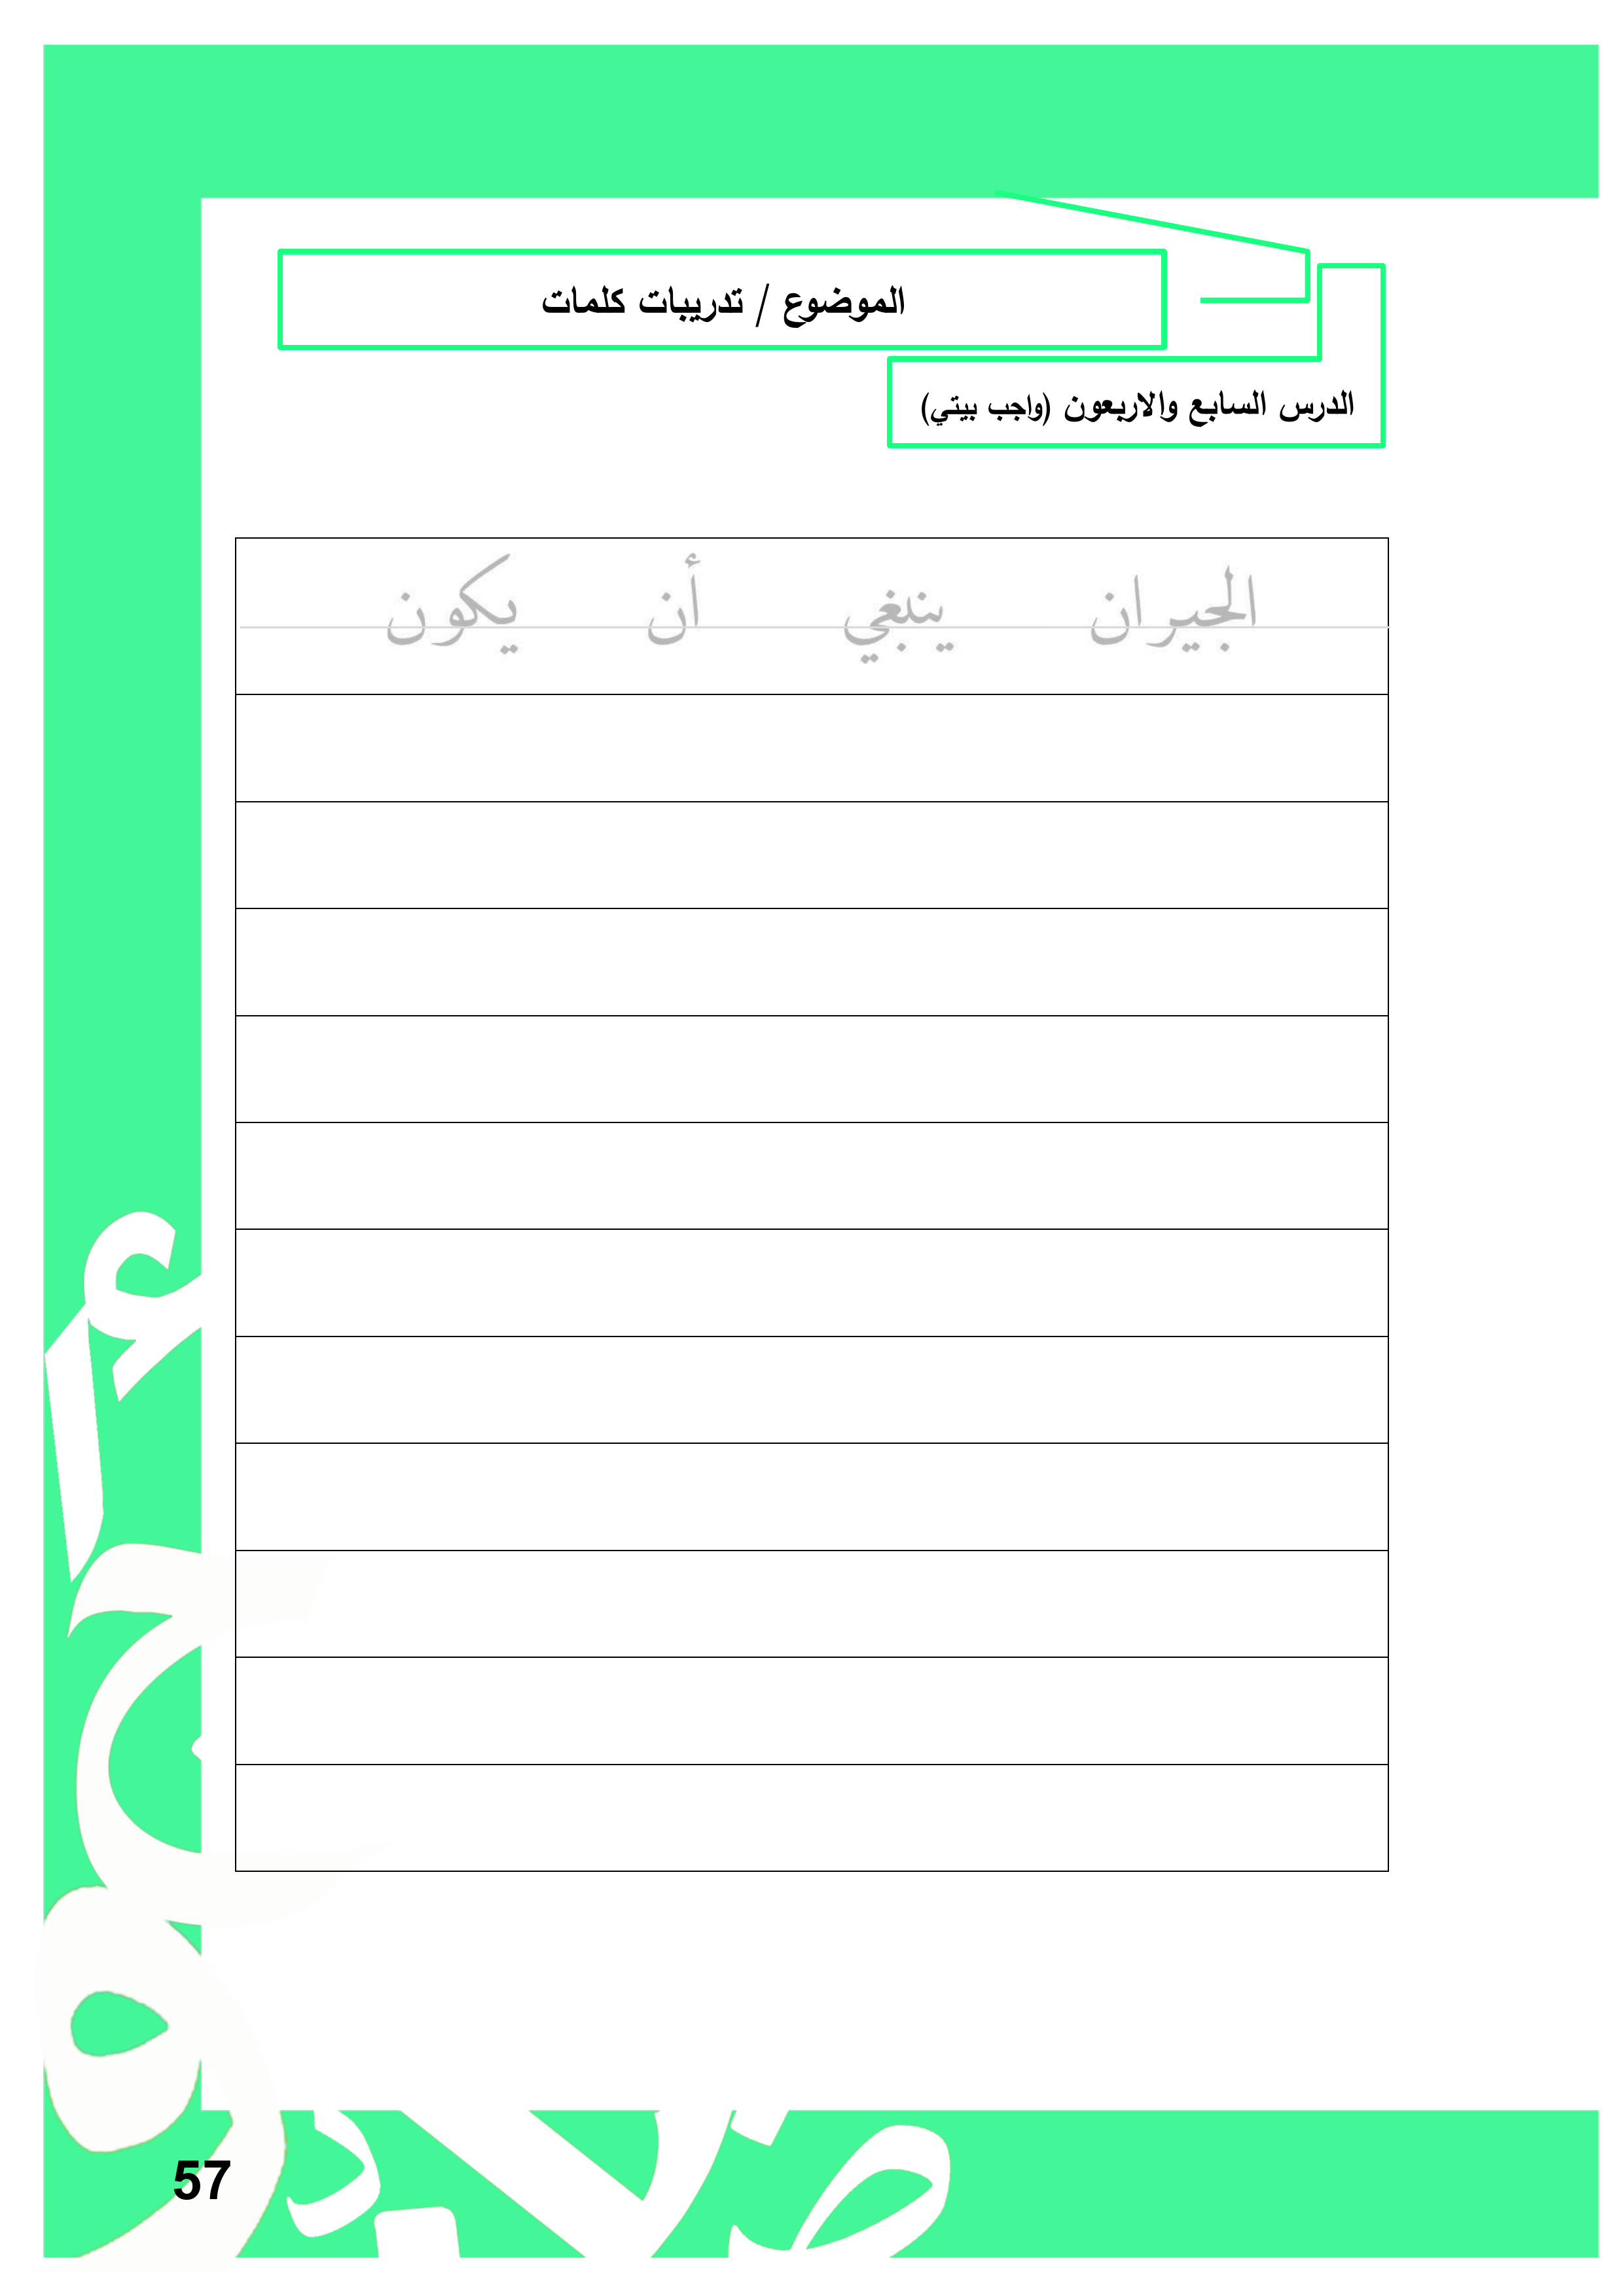 الموضوع / تدريبات كلمات
الدرس السابع والاربعون (واجب بيتي)
الجيران ينبغي أن يكون
57